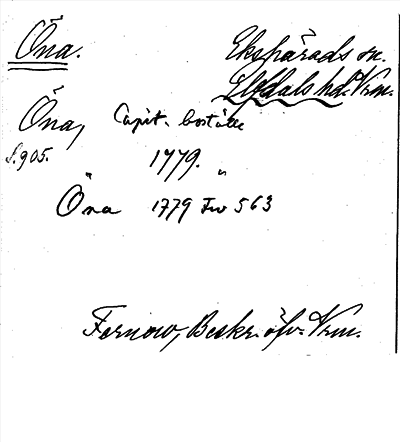 Öna.
Ekshärads sn.
Elfdals hd. Vrm.
Öna, Capit. boställe
S. 905. 1779. "
Öna 1779 Fw 563
Fernow, Beskr. öfv. Vrm.